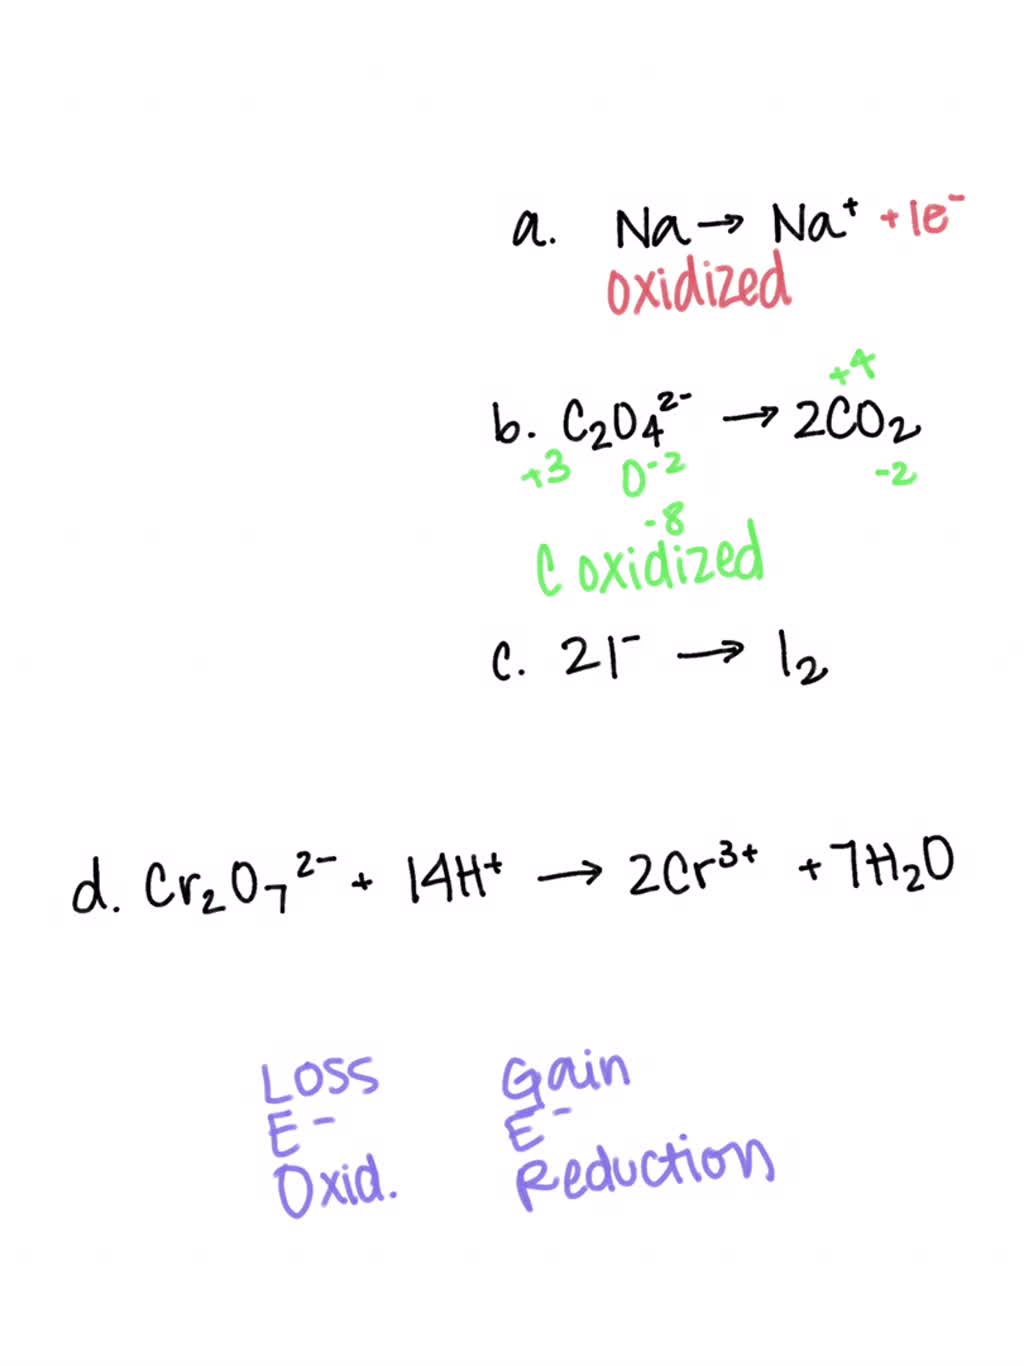 a. Na → Na⁺ +1e⁻
oxidized
+4
b. C₂O₄²⁻ → 2CO₂
+3 O⁻² -2
-8
C oxidized
c. 2I⁻ → I₂
d. Cr₂O₇²⁻ + 14H⁺ → 2Cr³⁺ + 7H₂O
Loss Gain
E⁻ E⁻
Oxid. Reduction